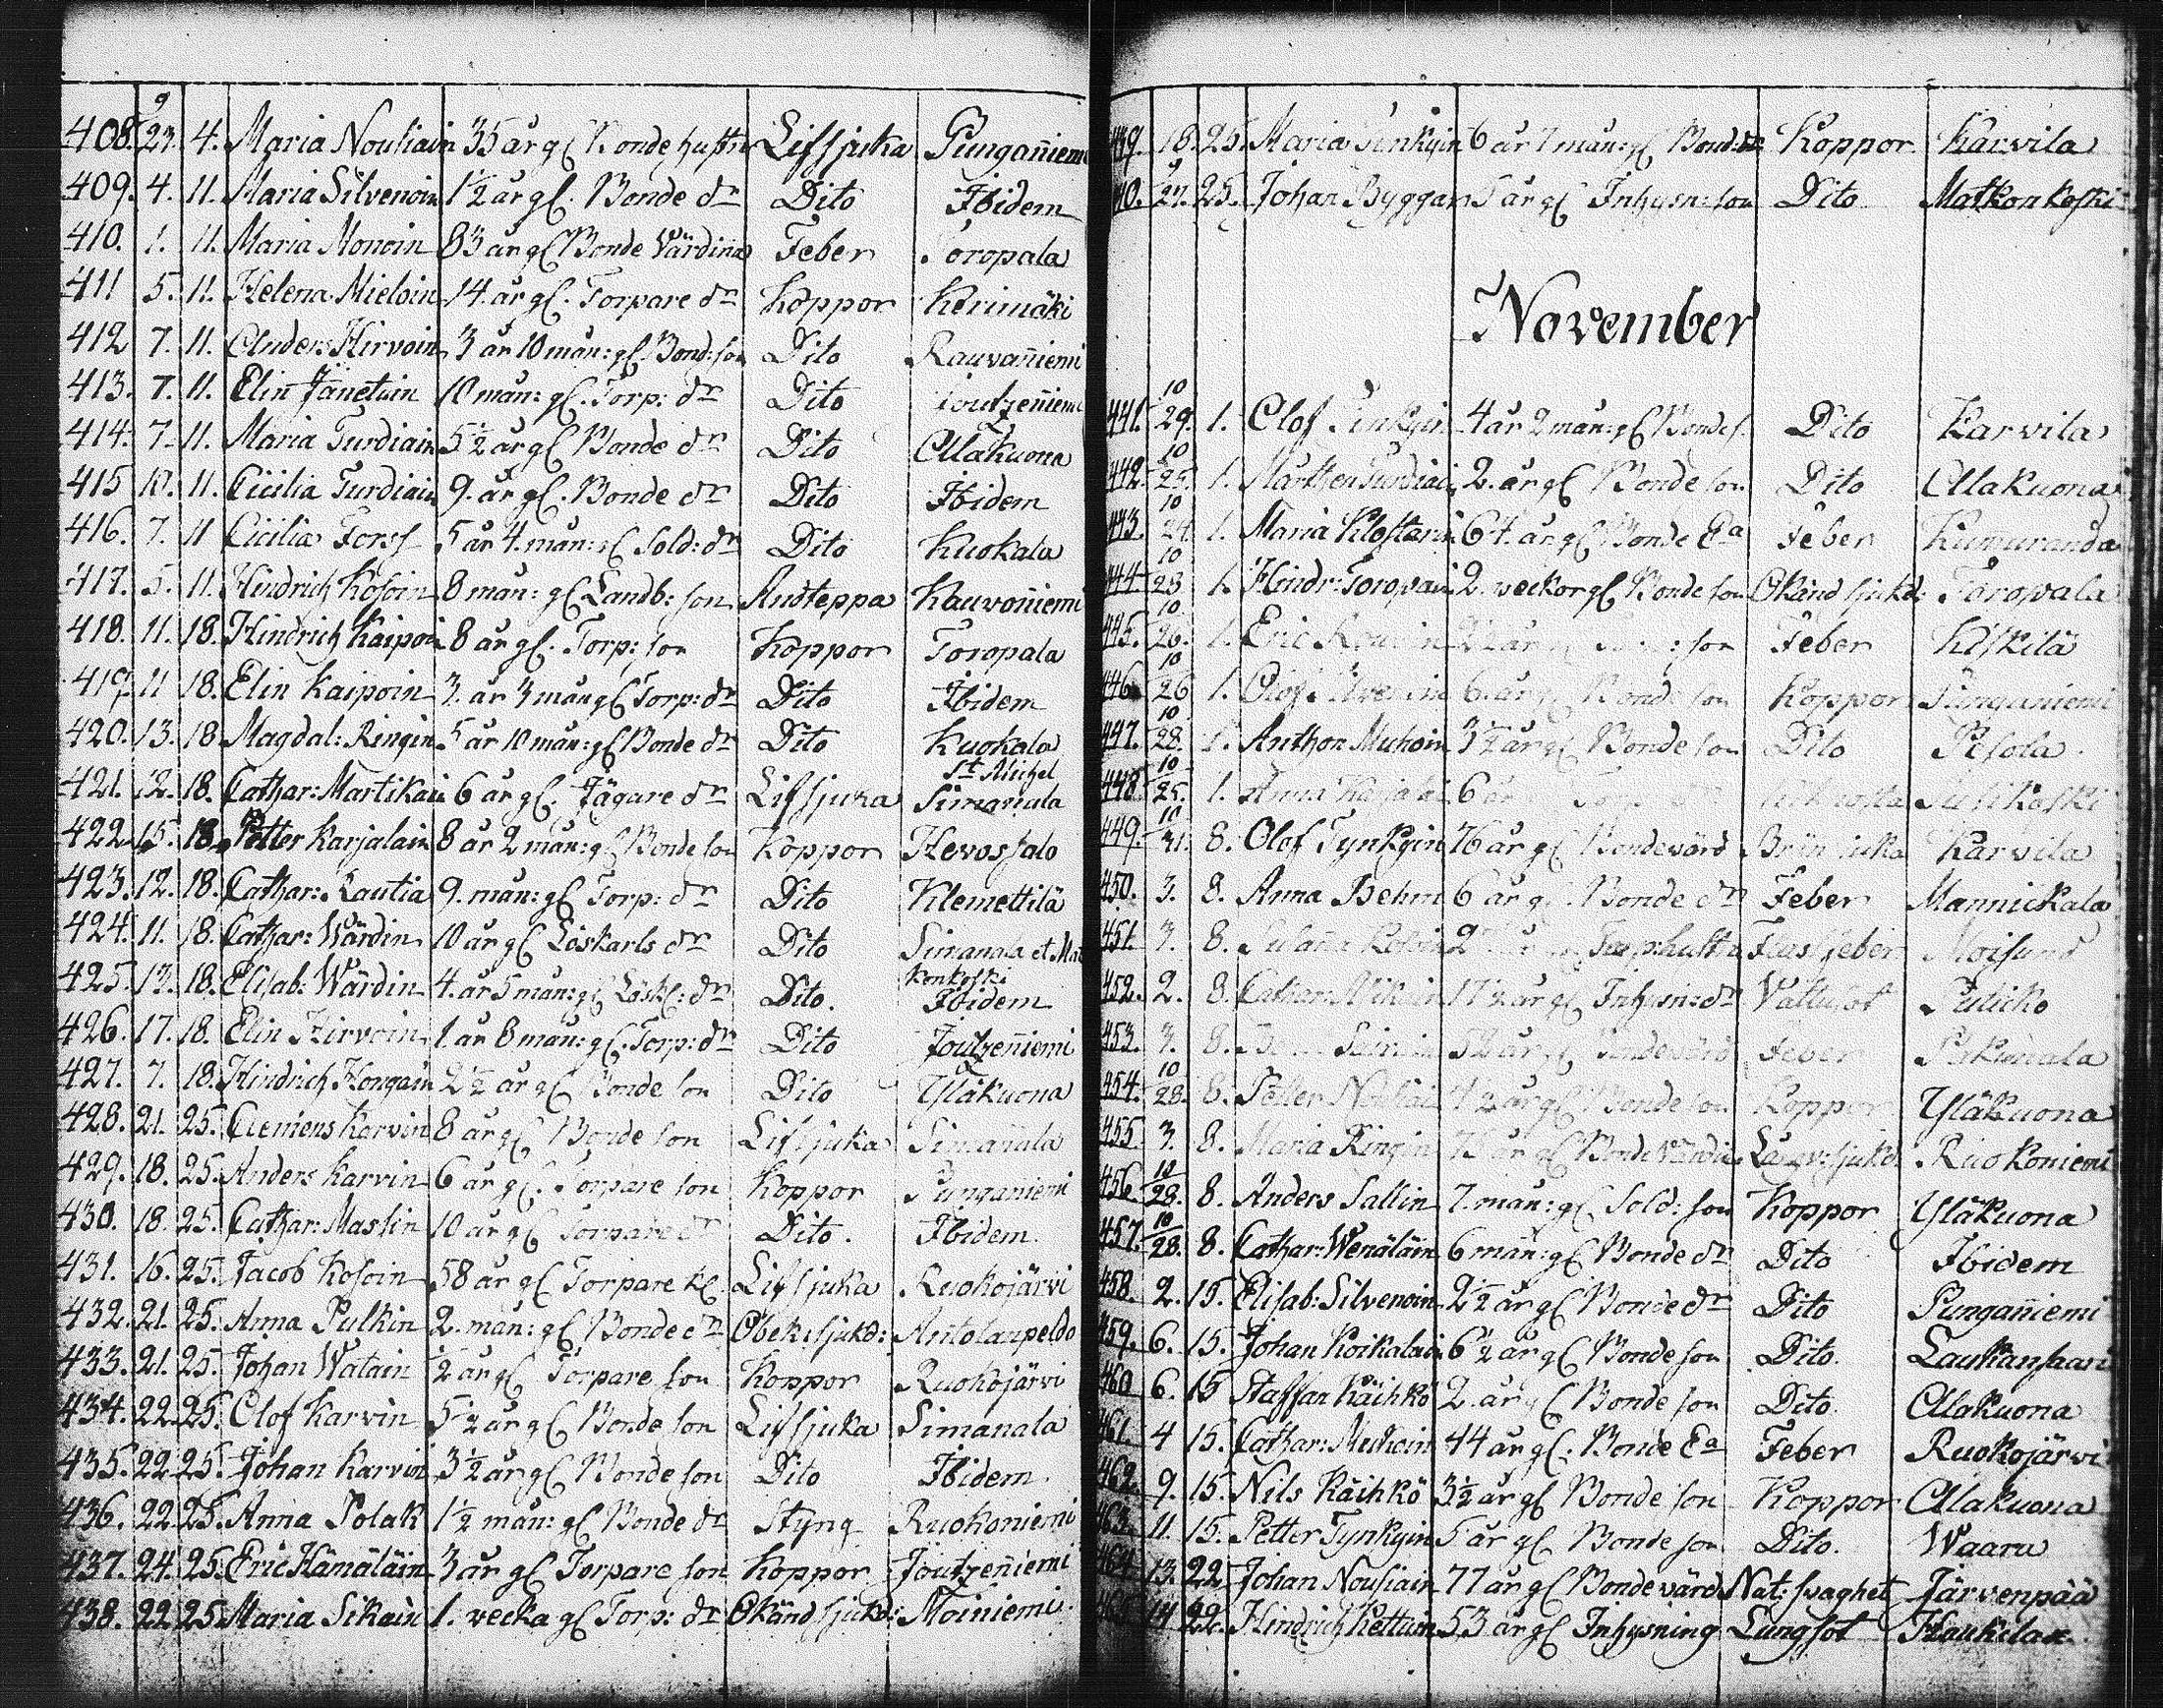 408. 9/23. 4. Maria Nousiain 35 år gl Bonde hustru Lifsjuka Punganiemi
409. 4. 11. Maria Silvenoin 1 1/2 år gl. Bonde dr Dito Ibidem
410. 1. 11. Maria Monoin 83 år gl Bonde Värdina Feber Toropala
411 5. 11. Helena Mieloin 14. år gl. Torpare dr Koppor Kerimäki
412 7. 11. Anders Hirvoin 3 år 10 mån: gl. Bond: son Dito Rauvaniemi
413. 7. 11. Elin Jänetuin 10 mån: gl. Torp: dr Dito Joutzeniemi
414. 7. 11. Maria Turdiain 5 1/2 år gl Bonde dr Dito Allakuona
415 10. 11. Cicilia Turdiain 9. år gl. Bonde dr Dito Ibidem
416. 7. 11 Cicilia Forss 5 år 4. mån: gl Sold: dr Dito Kuokala
417. 5. 11. Hindrich Kosoin 8 mån: gl Landb: son Andteppa Kauvoniemi
418. 11. 18. Hindrich Kaipoin 8 år gl. Torp: son Koppor Toropala
419. 11 18. Elin Kaipoin 3. år 3 mån gl Torp: dr Dito Ibidem
420. 13. 18 Magdal: Ringin 5 år 10 mån: gl Bonde dr Dito Kuokala
421. 12. 18. Cathar: Martikain 6 år gl. Jägare dr Lifsjuka St Michel Simanala
422. 15. 18. Petter Karjalain 8 år 2 mån: gl Bonde son Koppor Hevossalo
423. 12. 18. Cathar: Lautia 9. mån: gl Torp: dr Dito Klemettilä
424. 11. 18. Cathar: Wärdin 10 år gl Löskarls dr Dito Simanala et Mat
konkoski
425. 13. 18. Elisab: Wärdin 4. år 5 mån: gl Lösk: dr Dito. Ibidem
426. 17. 18. Elin Hirvoin 1. år 8 mån: gl. Torp: dr Dito Joutzeniemi
427. 7. 18. Hindrich Hongain 2 1/2 år gl Bonde son Dito Yläkuona
428. 21. 25. Clemens Karvin 8 år gl Bonde son Lifsjuka Simanala
429. 18. 25. Anders Karvin 6 år gl. Torpare son Koppor Punganiemi
430. 18. 25. Cathar: Maslin 10 år gl Torpare dr Dito. Ibidem.
431. 16. 25. Jacob Kosoin 58 år gl Torpare Kl. Lifsjuka Ruokojärvi
432. 21. 25. Anna Pulkin 2. mån: gl Bonde dr Obek: sjukd: Antolanpeldo
433. 21. 25. Johan Watain 1/2 år gl Torpare son Koppor Ruokojärvi
434. 22. 25. Olof Karvin 5 1/2 år gl Bonde son Lifsjuka Simanala
435. 22 25. Johan Karvin 3 1/2 år gl Bonde son Dito Ibidem.
436. 22 25. Anna Polak 1 1/2 mån: gl Bonde dr Styng Ruokoniemi
437. 24. 25. Eric Hämäläin 3 år gl Torpare son Koppor Joutzeniemi
438. 22 25 Maria Sikain 1. vecka gl Torp: dr Okänd sjukd: Moiniemi.
439. 18. 25. Maria Tinkyin 6 år 7 mån: gl Bond: dr Koppor Karvila
40. 9/27. 25. Johan Byggar 5 år gl Inhysn: son Dito Matkonkoski
November
441. 10/29. 1. Olof Tinkyin 4 år 2 mån: gl Bonde s. Dito Karvila
442. 10/25. 1. Marthen Turdiai 2. år gl Bonde son Dito Allakuona
443. 10/24. 1. Maria Klostarin 64. år gl Bonde Ea Feber Kumuranda
444. 10/23 1. Hindr: Toropain 2. veckor gl Bonde son Okänd sjukd: Toropala
445. 10/26. 1. Eric son Feber Kiskilä
446. 10/26 1. Olof Silvenoin 6. år gl Bonde son Koppor Punganiemi
447. 10/28. 1. Anthon Muhoin 3 1/2 år gl Bonde son Dito Pesola.
448. 10/25. 1. Anna Karjalai 6 år
449. 10/31. 8. Olof Tynkyin 76 år gl Bondevärd Karvila
450. 3. 8. Anna Behm 6 år gl. Bonde dr Feber Mannickala
451. 3. 8. Torp: hustru Moisund
452. 2. 8. Cathar: 17 1/2 år gl Inhysn: dr Vattusot Puliko
453. 3. 8. 52 år gl Bondevärd Feber
454. 10/28. 8. Petter Bonde son Koppor Yläkuona
455. 3. 8. Maria Ringin år gl Bonde Värdin Ruokoniemi
456. 10/28. 8. Anders Sallin 7. mån: gl Sold: son Koppor Yläkuona
457. 10/28. 8. Cathar: Wenäläin 6 mån: gl Bonde dr Dito Ibidem
458. 2. 15. Elisab: Silvenoin 2 1/2 år gl Bonde dr Dito Punganiemi
459. 6. 15. Johan Koikalain 6 1/2 år gl Bonde son Dito. Laukansaari
460 6. 15 Staffan Käihkö 2. år gl Bonde son Dito. Allakuona
461. 4 15. Cathar: Muhoin 44 år gl. Bonde Ea Feber Ruokojärvi
462. 9. 15. Nils Käihkö 3 1/2 år gl Bonde son Koppor Allakuona
463. 11. 15. Petter Tynkyin 5 år gl Bonde son Dito. Waara
464 13. 22 Johan Nousiain 77 år gl Bonde värd Nat: svaghet Järvenpää
14 22. Hindrich Kettuin 53 år gl Inhysning Lungsot Haukilax.